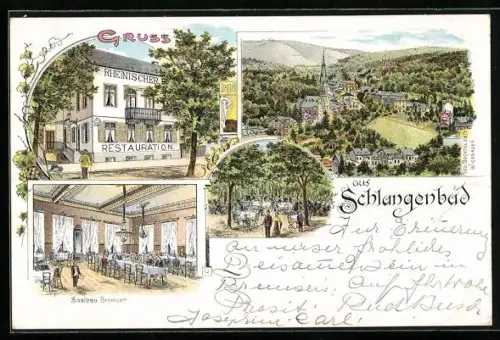 Gruss
RHEINISCHER
RESTAURATION.
aus
Schlangenbad
Saalbau Bremser
Zur Erinnerung
an unser fröhliches
Beisammensein in
Bremsers. Auf Ihr Wohl
Prosit. Rud
Josephine Carl.